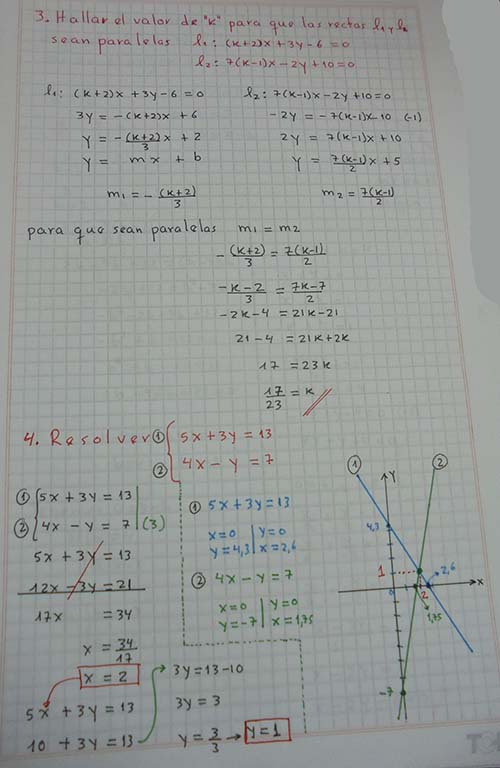 3. Hallar el valor de "K" para que las rectas l₁ y l₂
sean paralelas l₁: (K+2)x + 3y - 6 = 0
l₂: 7(K-1)x - 2y + 10 = 0
l₁: (K+2)x + 3y - 6 = 0
3y = -(K+2)x + 6
y = -(K+2)/3 x + 2
y = mx + b
m₁ = -(K+2)/3
l₂: 7(K-1)x - 2y + 10 = 0
-2y = -7(K-1)x - 10 (-1)
2y = 7(K-1)x + 10
y = 7(K-1)/2 x + 5
m₂ = 7(K-1)/2
para que sean paralelas m₁ = m₂
-(K+2)/3 = 7(K-1)/2
-K-2/3 = 7K-7/2
-2K-4 = 21K-21
21-4 = 21K+2K
17 = 23K
17/23 = K
4. Resolver ① { 5x + 3y = 13
② 4x - y = 7
① { 5x + 3y = 13
② 4x - y = 7 | (3)
5x + 3y = 13
12x - 3y = 21
17x = 34
x = 34/17
x = 2
5x + 3y = 13
10 + 3y = 13
① 5x + 3y = 13
x=0 | y=0
y=4,3 | x=2,6
② 4x - y = 7
x=0 | y=0
y=-7 | x=1,75
3y = 13-10
3y = 3
y = 3/3 → y = 1
① y ②
4,3
1
2,6
0
2
x
1,75
-7